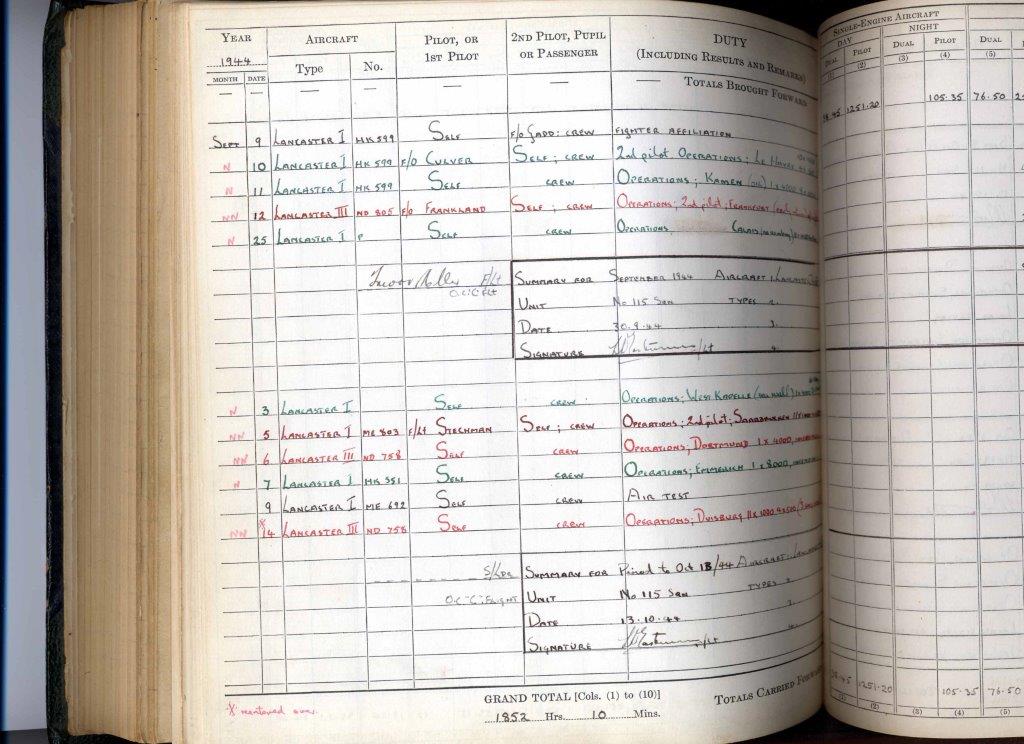 YEAR AIRCRAFT PILOT, OR 1ST PILOT 2ND PILOT, PUPIL OR PASSENGER DUTY (INCLUDING RESULTS AND REMARKS)
1944 Type No.
MONTH DATE
— — — — — — TOTALS BROUGHT FORWARD
SEPT 9 LANCASTER I HK 599 SELF F/O GADD: CREW FIGHTER AFFILIATION
N 10 LANCASTER I HK 599 F/O CULVER SELF; CREW 2nd pilot. OPERATIONS; LE HAVRE
N 11 LANCASTER I HK 599 SELF CREW OPERATIONS; KAMEN (OIL) 1 x 4000
NN 12 LANCASTER III ND 805 F/O FRANKLAND SELF; CREW OPERATIONS; 2nd pilot; FRANKFURT
N 25 LANCASTER I P SELF CREW OPERATIONS CALAIS
F/Lt
O.C. 'C' Flt
SUMMARY FOR SEPTEMBER 1944 AIRCRAFT 1. LANCASTER
UNIT No 115 SQN TYPES 2.
DATE 30.9.44 3.
SIGNATURE F/Lt 4.
N 3 LANCASTER I SELF CREW OPERATIONS; WEST KAPELLE (sea wall)
NN 5 LANCASTER I ME 803 F/Lt STECHMAN SELF; CREW OPERATIONS; 2nd pilot; SAARBRUCKEN
NN 6 LANCASTER III ND 758 SELF CREW OPERATIONS; DORTMUND 1 x 4000,
N 7 LANCASTER I HK 551 SELF CREW OPERATIONS; EMMERICH 1 x 8000,
9 LANCASTER I ME 692 SELF CREW AIR TEST
NN X 14 LANCASTER III ND 758 SELF CREW OPERATIONS; DUISBURG 11 x 1000 4 x 500
S/LDR
O.C. 'C' FLIGHT
SUMMARY FOR Period to Oct 13/44 AIRCRAFT 1.
UNIT No 115 SQN TYPES 2.
DATE 13.10.44 3.
SIGNATURE F/Lt 4.
GRAND TOTAL [Cols. (1) to (10)]
1852 Hrs. 10 Mins.
TOTALS CARRIED FORWARD
X mentioned over.
SINGLE-ENGINE AIRCRAFT
DAY NIGHT
DUAL PILOT DUAL PILOT DUAL
(1) (2) (3) (4) (5)
1251.20 105.35 76.50
1251.20 105.35 76.50
(1) (2) (3) (4) (5)